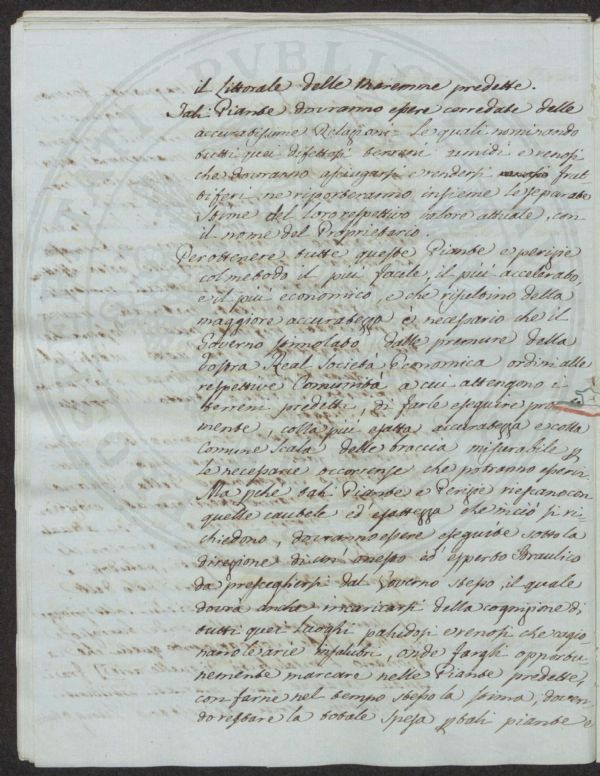 il Littorale delle Maremme predette.
Tali Piante dovranno essere corredate delle
accuratissime Relazioni = Le quali nominando
tutti quei difettosi terreni umidi e renosi
che dovranno asciugarsi e rendersi frut
tiferi ne riporteranno insieme le separate
stime del loro respettivo valore attuale, con
il nome del Proprietario.
Per ottenere tutte queste Piante e perizie
col metodo il più facile, il più accelerato,
e il più economico, e che risultino della
maggiore accuratezza è necessario che il
Governo stimolato dalle premure della
Vostra Real Società Economica ordini alle
respettive Comunità a cui attengono i
terreni predetti, di farle eseguire
mente, colla più esatta accuratezza e colla
Comune Scala delle braccia misurabile p
le necessarie occorrenze che potranno esservi.
Ma pche tali Piante e Perizie riescano con
quelle cautele ed esattezza che in ciò si ri
chiedono, dovranno essere eseguite sotto la
direzione di un' onesto ed' esperto Idraulico
da prescegliersi dal Governo stesso, il quale
dovrà anche incaricarsi della cognizione di
tutti quei Luoghi paludosi e renosi che cagio
nano le arie insalubri, onde fargli opportu
nemente marcare nelle Piante predette,
con farne nel tempo stesso la stima, doven
do restare la totale spesa p tali piante e